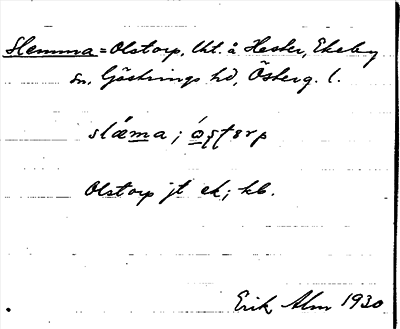 Slemma = Olstorp, lht. å Hester, Ekeby
sn, Göstrings hd, Österg. l.
slæ̀ma; 
Olstorp jt ek; kb.
Erik Alm 1930